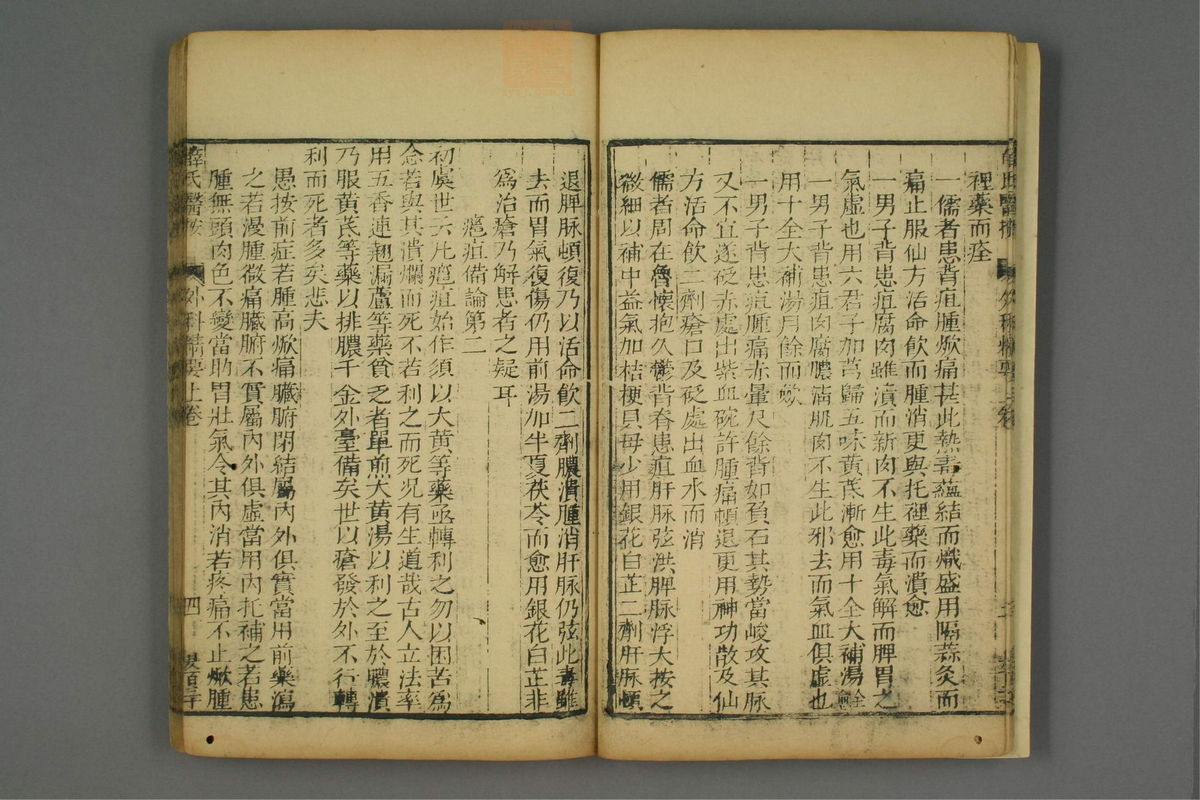 裡藥而痊
一儒者患背疽腫焮痛甚此熱毒蘊結而熾盛用隔蒜灸而
痛止服仙方活命飲而腫消更與托裡藥而潰愈
一男子背患疽腐肉雖潰而新肉不生此毒氣解而脾胃之
氣虛也用六君子加芎歸五味黃芪漸愈用十全大補湯全愈
一男子背患疽肉腐膿淸肌肉不生此邪去而氣血俱虛也
用十全大補湯月餘而歛
一男子背患疽腫痛赤暈尺餘背如負石其勢當峻攻其脉
又不宜遂砭赤處出紫血碗許腫痛頓退更用神功散及仙
方活命飲二劑瘡口及砭處出血水而消
儒者周在魯懷抱久鬱背脊患疽肝脉弦洪脾脉浮大按之
微細以補中益氣加桔梗貝母少用銀花白芷二劑肝脉頓
退脾脉頓復乃以活命飲二劑膿潰腫消肝脉仍弦此毒雖
去而胃氣復傷仍用前湯加半夏茯苓而愈用銀花白芷非
爲治瘡乃解患者之疑耳
瘡疽備論第二
初虞世云凡癰疽始作須以大黃等藥亟轉利之勿以困苦爲
念若與其潰爛而死不若利之而死况有生道哉古人立法率
用五香連翹漏蘆等藥貧乏者單煎大黃湯以利之至於膿潰
乃服黃芪等藥以排膿千金外臺備矣世以瘡發於外不行轉
利而死者多矣悲夫
愚按前症若腫高焮痛臟腑閉結屬內外俱實當用前藥瀉
之若漫腫微痛臟腑不實屬內外俱虛當用內托補之若患
腫無頭肉色不變當助胃壯氣令其內消若疼痛不止焮腫
薛氏醫按
外科精要上卷
四